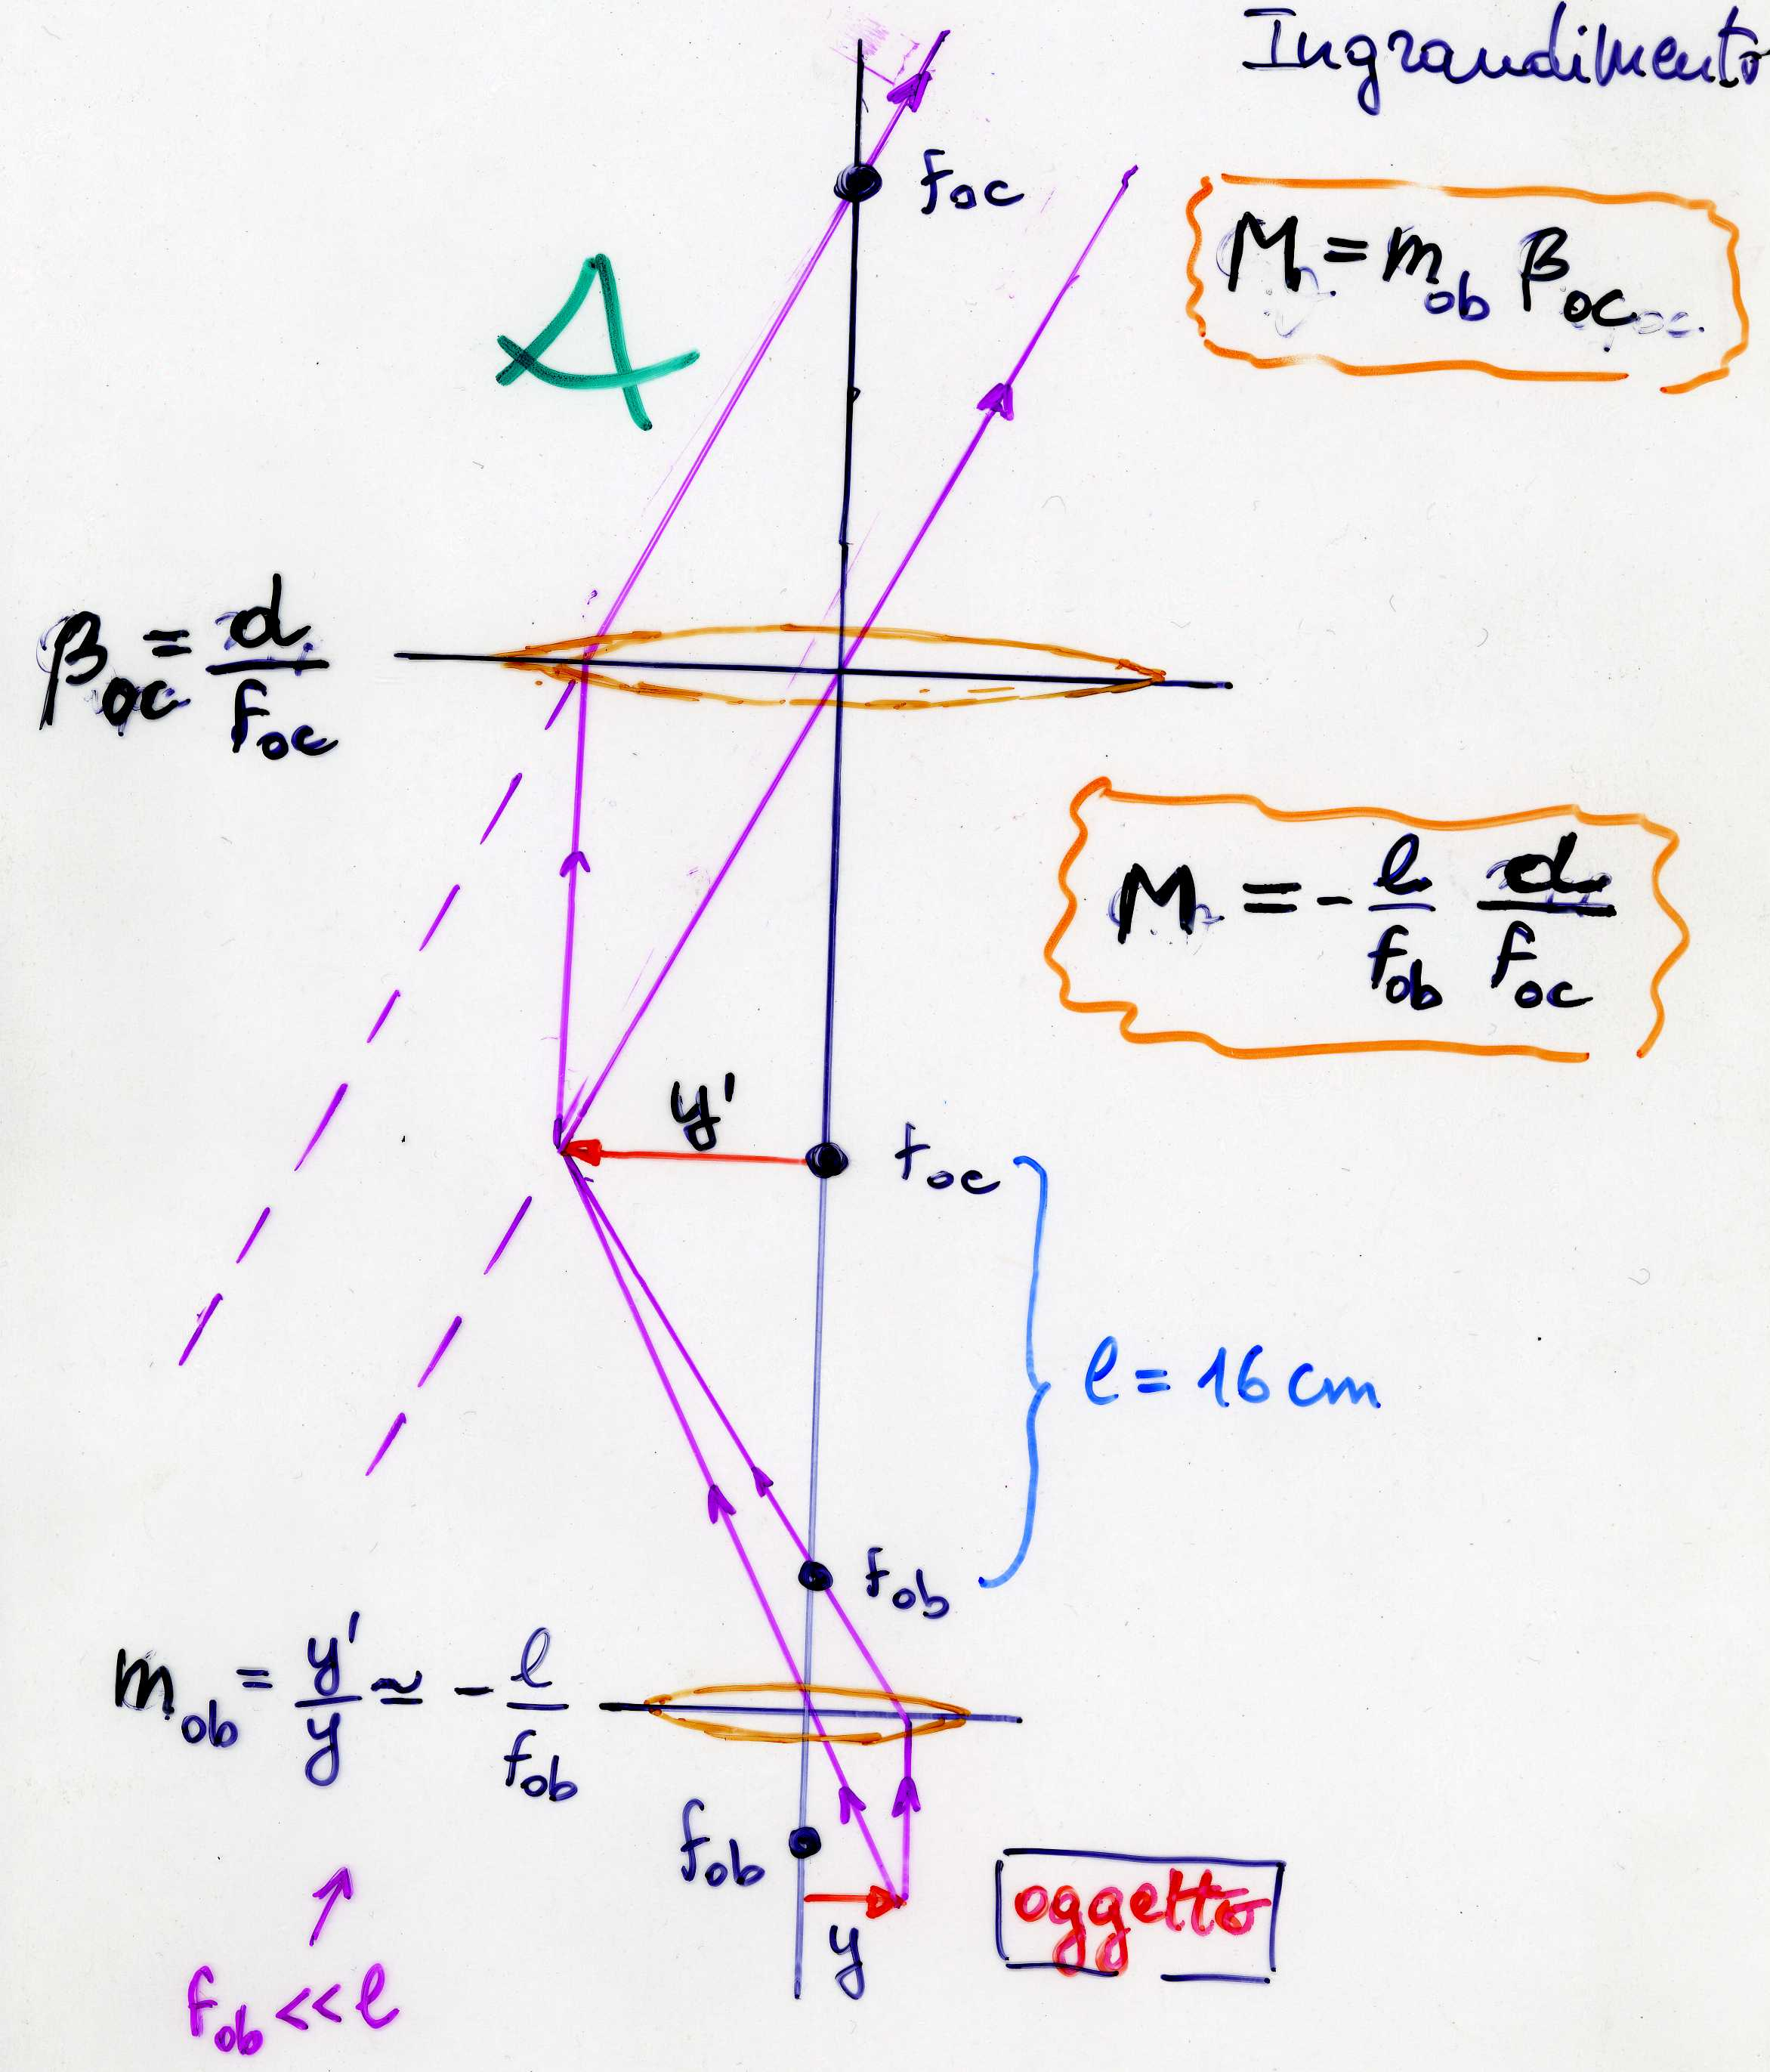 Ingrandimento
foc
M = mob βoc
A
βoc = d/foc
M = - l/fob d/foc
y'
foc
l = 16 cm
fob
mob = y'/y ≃ - l/fob
fob
oggetto
y
fob << l